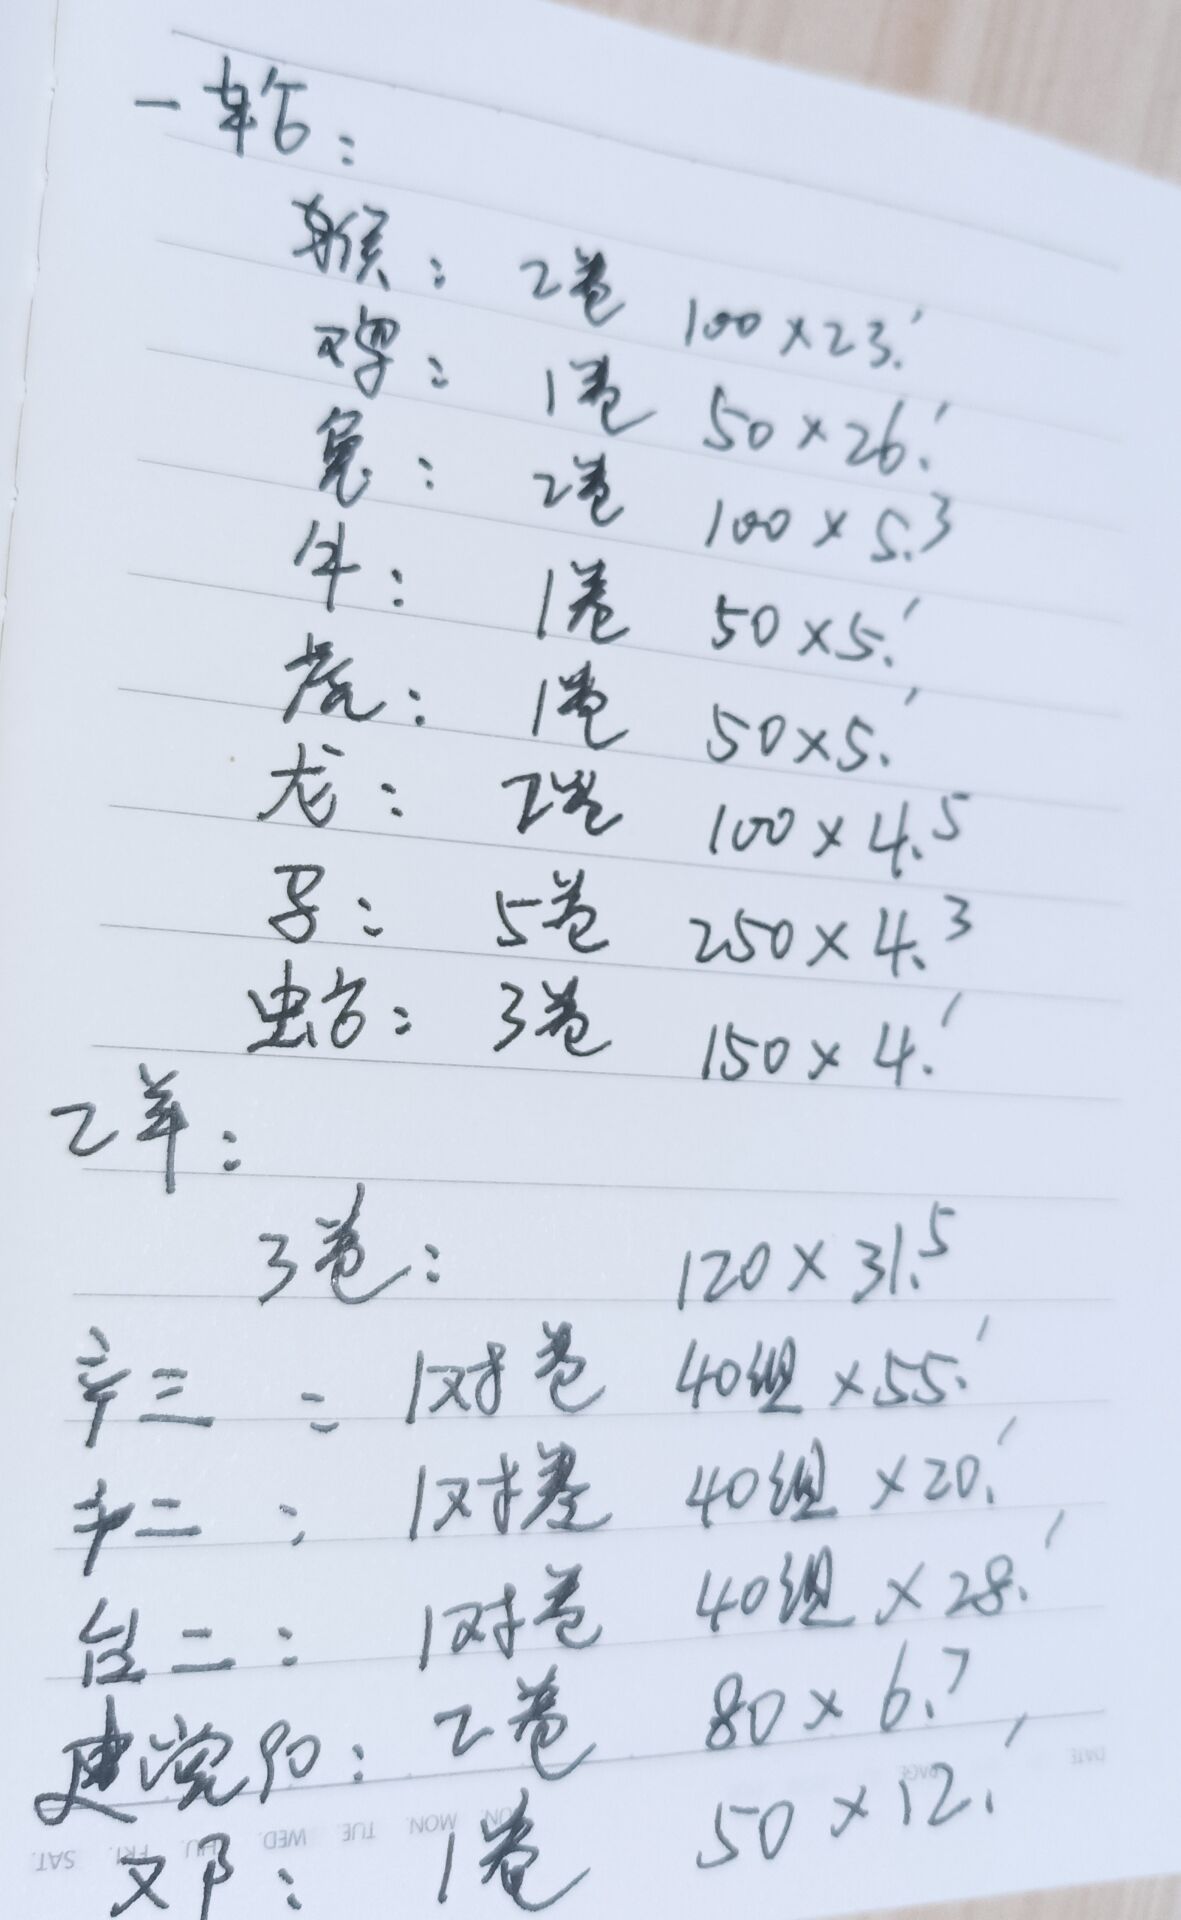 一轮：
猴：2卷 100×23.'
鸡：1卷 50×26.'
兔：2卷 100×5.3
牛：1卷 50×5.'
虎：1卷 50×5.'
龙：2卷 100×4.5
子：5卷 250×4.3
蛇：3卷 150×4.'
二羊：
3卷：120×31.5
辛三：1对卷 40组×55.'
辛二：1对卷 40组×20.'
台二：1对卷 40组×28.'
建党90：2卷 80×6.7
邓：1卷 50×12.'
DATE
PAGE
SUN. MON. TUE. WED. THU. FRI. SAT.